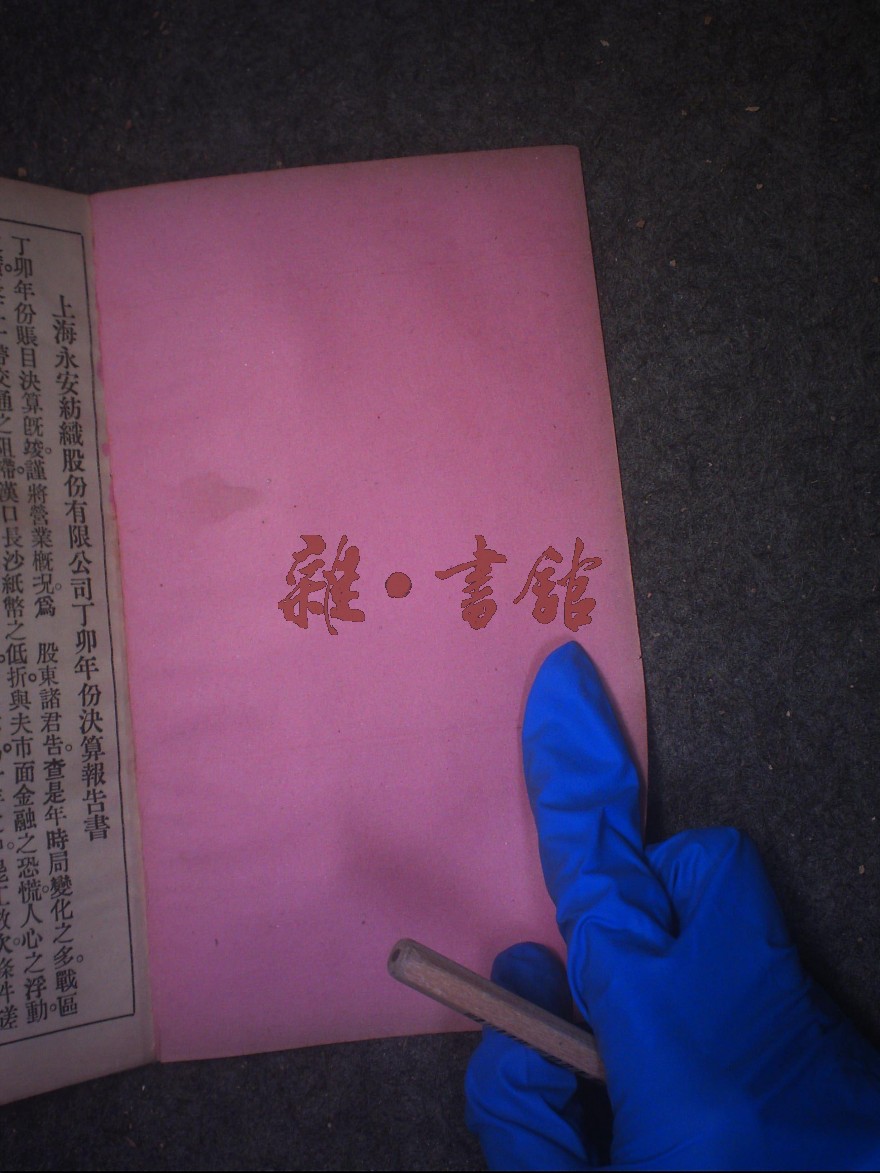 上海永安紡織股份有限公司丁卯年份決算報告書
丁卯年份賬目決算旣竣。謹將營業概況。爲　股東諸君告。查是年時局變化之多。戰區
交通之阻滯。漢口長沙紙幣之低折。與夫市面金融之恐慌。人心之浮動。
雜·書館